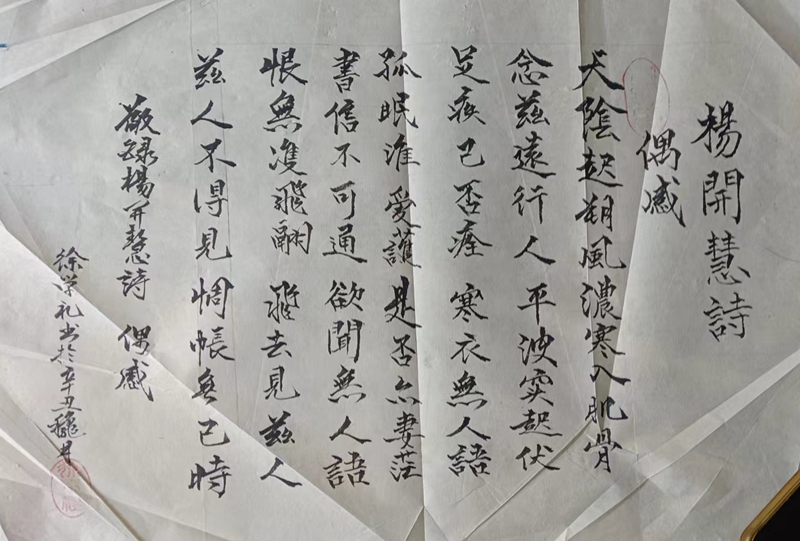 楊開慧詩
偶感
天陰起朔風濃寒入肌骨
念茲遠行人平波突起伏
足疾已否痊寒衣無人語
孤眠誰愛護是否亦妻茫
書信不可通欲聞無人語
恨無雙飛翮飛去見茲人
茲人不得見惆悵無已時
敬録楊开慧詩 偶感
徐荣礼书於辛丑穐月